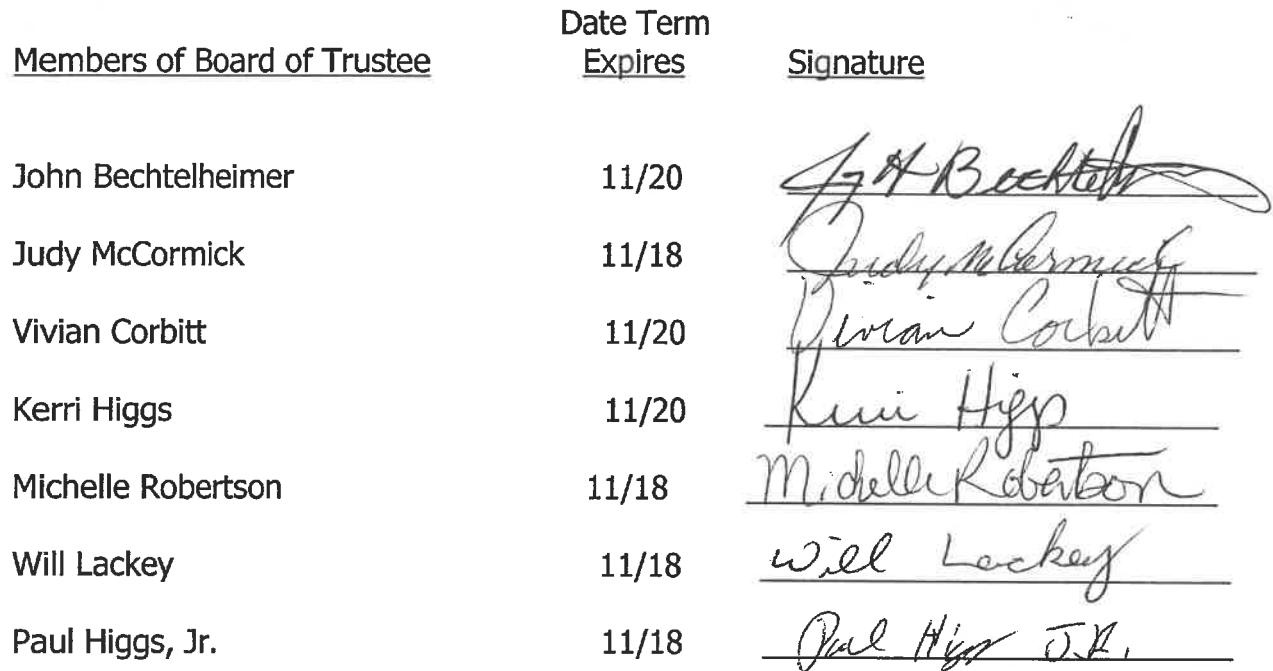 Date Term
Members of Board of Trustee Expires Signature
John Bechtelheimer 11/20 Bechtel
Judy McCormick 11/18 Judy McCormick
Vivian Corbitt 11/20 Vivian Corbitt
Kerri Higgs 11/20 Kerri Higgs
Michelle Robertson 11/18 Michelle Robertson
Will Lackey 11/18 Will Lackey
Paul Higgs, Jr. 11/18 Paul Higgs J.R.